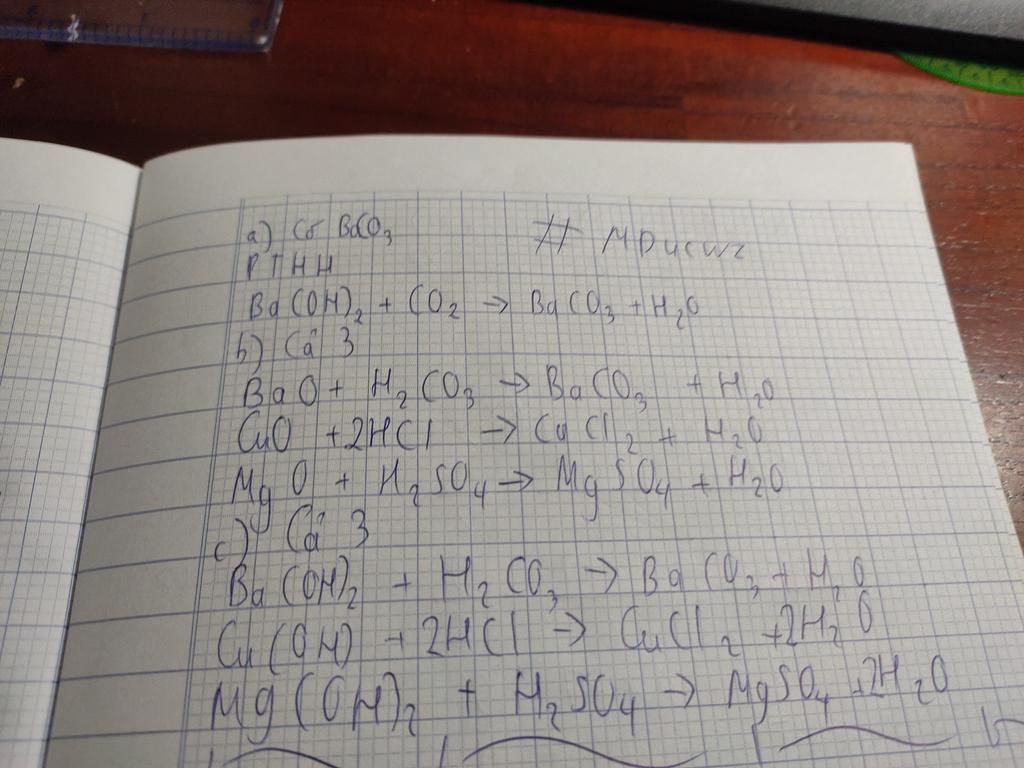 a) Có BaCO₃
PTHH
Ba(OH)₂ + CO₂ → BaCO₃ + H₂O
b) Cả 3
BaO + H₂CO₃ → BaCO₃ + H₂O
CuO + 2HCl → CuCl₂ + H₂O
MgO + H₂SO₄ → MgSO₄ + H₂O
c) Cả 3
Ba(OH)₂ + H₂CO₃ → BaCO₃ + H₂O
Cu(OH) + 2HCl → CuCl₂ + 2H₂O
Mg(OH)₂ + H₂SO₄ → MgSO₄ + 2H₂O